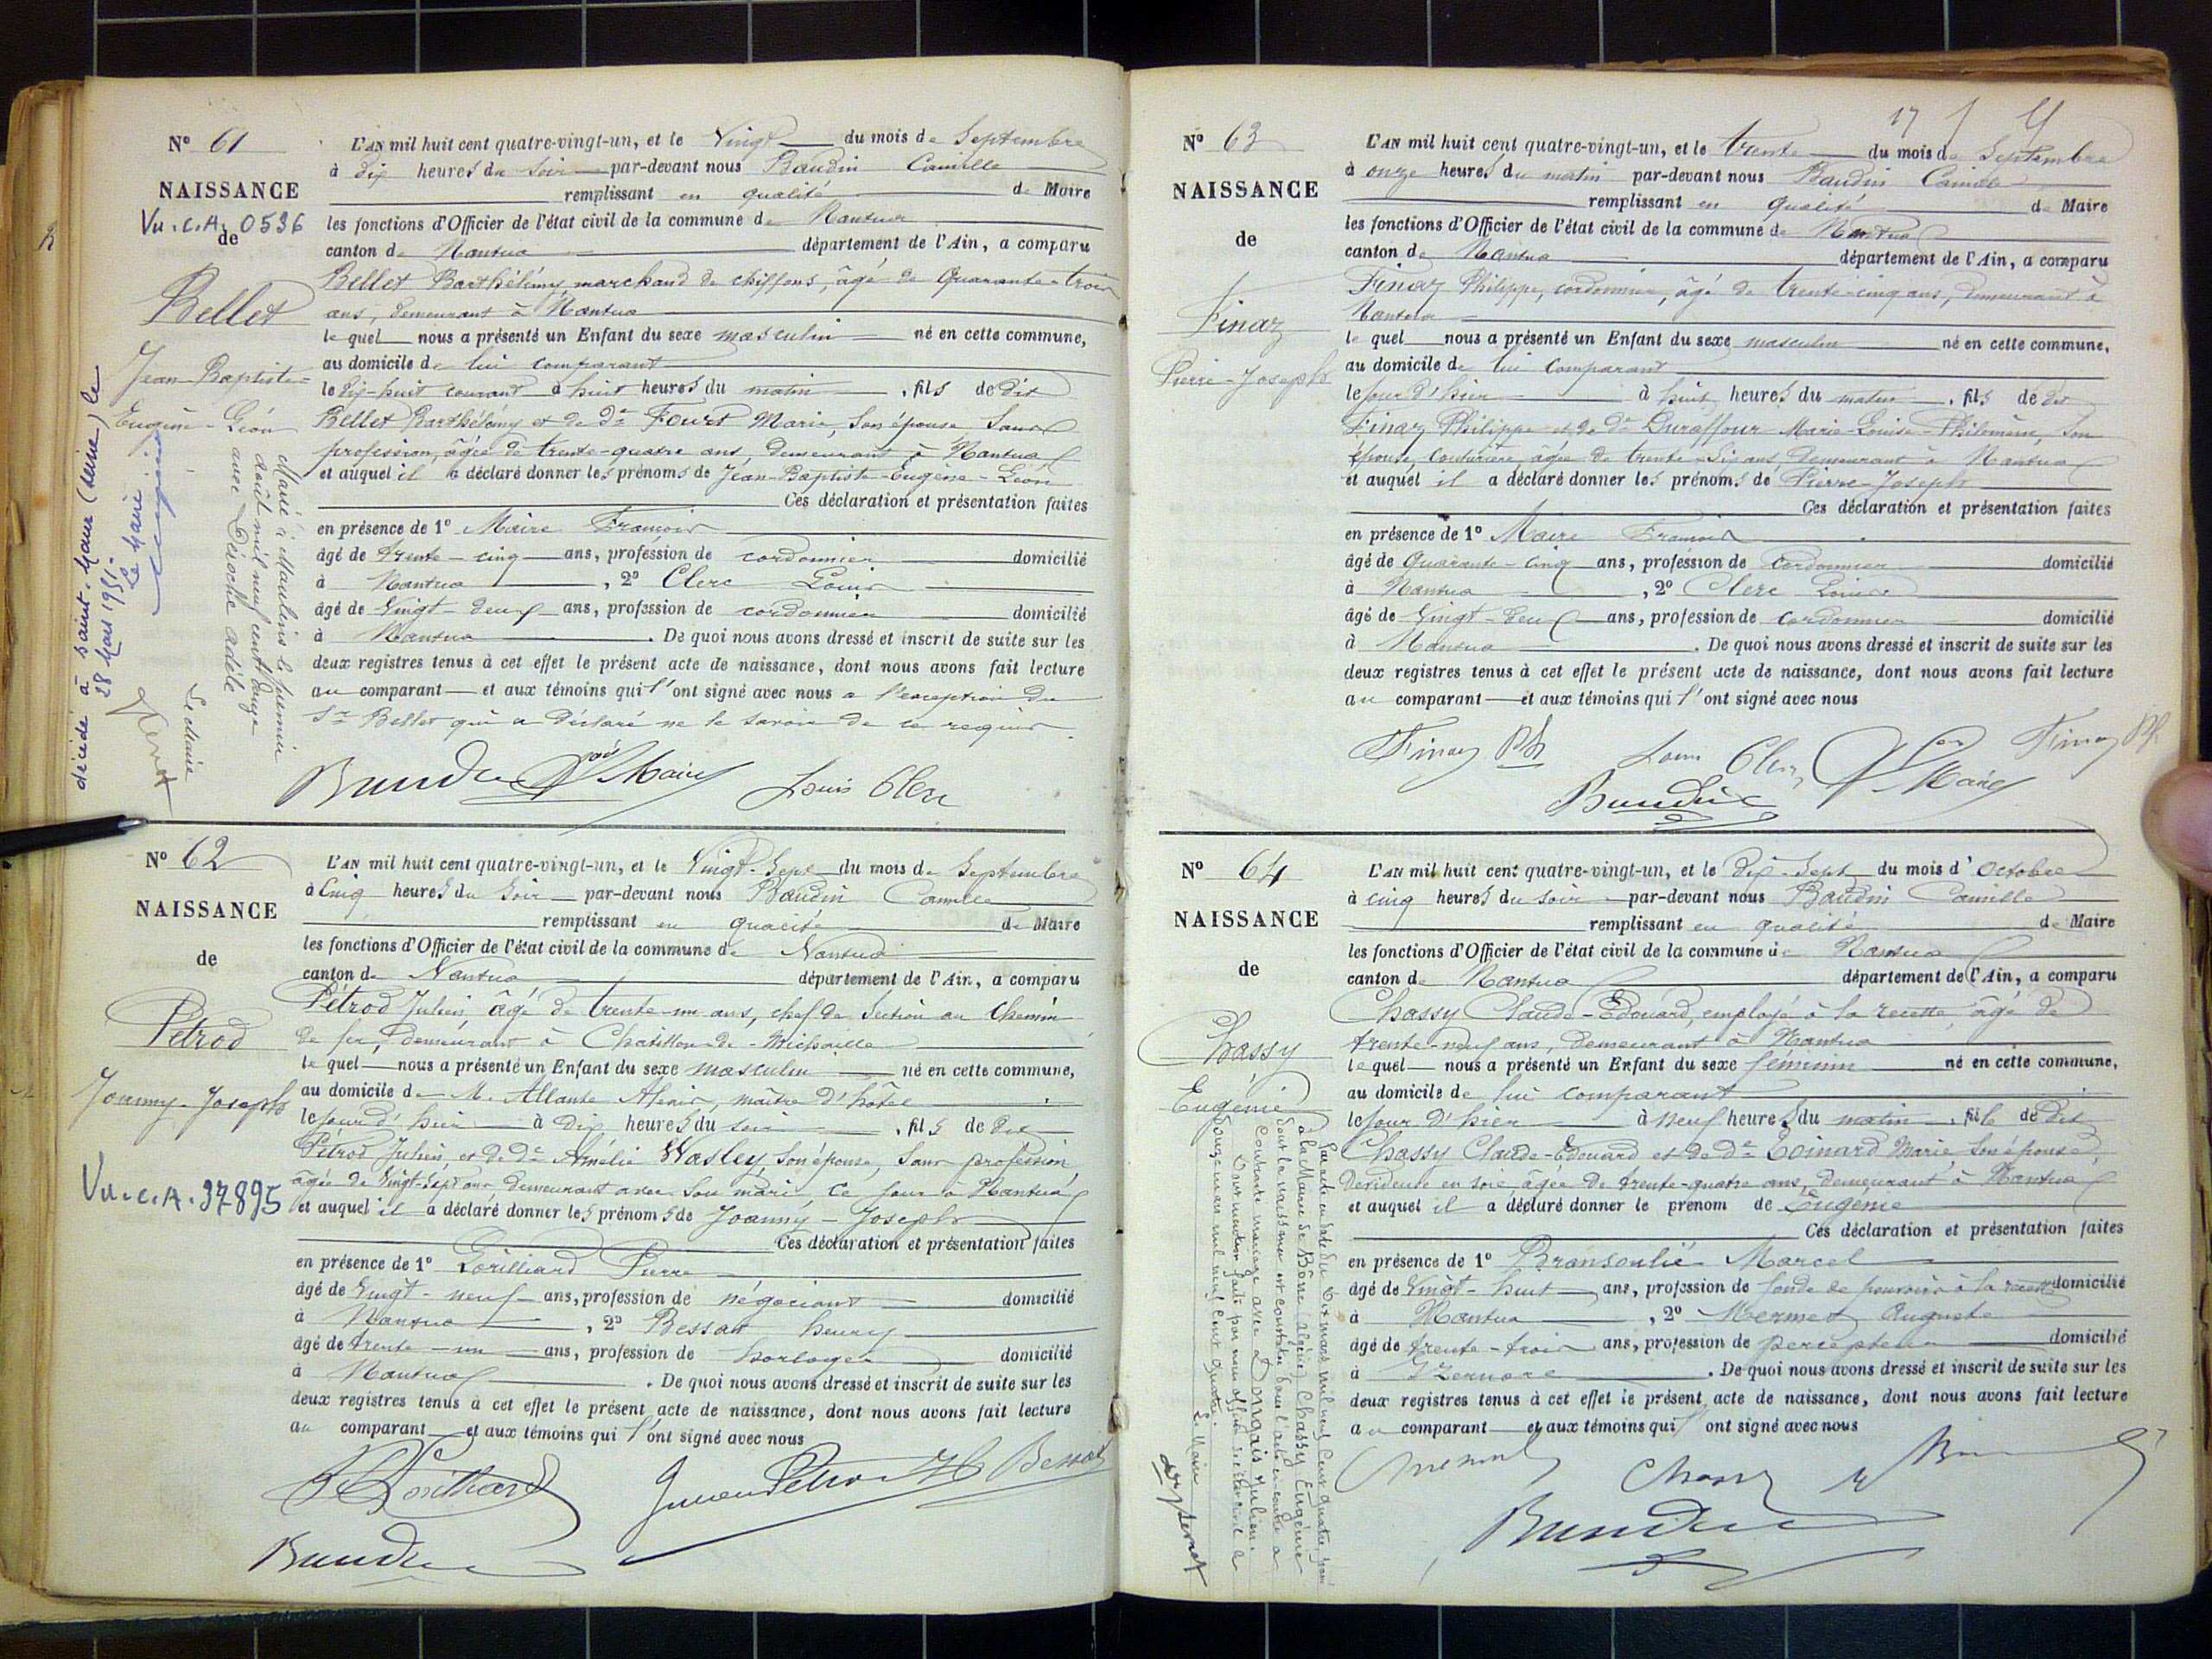 N° 61
NAISSANCE
Vu. C.A. 0536
de
Bellet
Jean-Baptiste-
Eugène-Léon
Marié à Moulins le premier
août mil neuf cent
avec Désoche Adèle
Le Maire
décédé à Saint-Maur (Seine) le
28 Mars 1951.
Le Maire
L'AN mil huit cent quatre-vingt-un, et le Vingt du mois de Septembre
à dix heures du soir par-devant nous Baudin Camille
remplissant en qualité de Maire
les fonctions d'Officier de l'état civil de la commune de Nantua
canton de Nantua département de l'Ain, a comparu
Bellet Barthélémy, marchand de chiffons, âgé de Quarante-trois
ans, demeurant à Nantua
lequel nous a présenté un Enfant du sexe masculin né en cette commune,
au domicile de lui comparant
le dix-huit courant à huit heures du matin, fils de dit
Bellet Barthélémy et de de Fouret Marie, son épouse, sans
profession, âgée de trente-quatre ans, demeurant à Nantua
et auquel il a déclaré donner les prénoms de Jean-Baptiste-Eugène-Léon
Ces déclaration et présentation faites
en présence de 1° Maire François
âgé de trente-cinq ans, profession de cordonnier domicilié
à Nantua, 2° Clerc Louis
âgé de Vingt-deux ans, profession de cordonnier domicilié
à Nantua. De quoi nous avons dressé et inscrit de suite sur les
deux registres tenus à cet effet le présent acte de naissance, dont nous avons fait lecture
au comparant et aux témoins qui l'ont signé avec nous a l'exception du
Sr Bellet qui a déclaré ne le savoir de ce requis.
Baudin Maire Louis Clerc
N° 62
NAISSANCE
de
Pétrod
Joanny-Joseph
Vu. C.A. 37895
L'AN mil huit cent quatre-vingt-un, et le Vingt-Sept du mois de Septembre
à Cinq heures du soir par-devant nous Baudin Camille
remplissant en qualité de Maire
les fonctions d'Officier de l'état civil de la commune de Nantua
canton de Nantua département de l'Ain, a comparu
Pétrod Julien, âgé de trente-un ans, chef de Section au Chemin
de fer, demeurant à Chatillon-de-Michaille
lequel nous a présenté un Enfant du sexe masculin né en cette commune,
au domicile de M. Allante Alexis, maître d'hôtel
le jour d'hier à Dix heures du soir, fils de Dit
Pétrod Julien et de de Amélie Wasley, son épouse, sans profession,
âgée de Vingt-Sept ans demeurant avec son mari, ce jour à Nantua
et auquel il a déclaré donner les prénoms de Joanny-Joseph
Ces déclaration et présentation faites
en présence de 1° Lorilliard Pierre
âgé de Vingt-neuf ans, profession de négociant domicilié
à Nantua, 2° Bessat henry
âgé de trente-un ans, profession de horloger domicilié
à Nantua. De quoi nous avons dressé et inscrit de suite sur les
deux registres tenus à cet effet le présent acte de naissance, dont nous avons fait lecture
au comparant et aux témoins qui l'ont signé avec nous
Julien Pétrod H Bessat
Baudin
17
N° 63
NAISSANCE
de
Finaz
Pierre-Joseph
L'AN mil huit cent quatre-vingt-un, et le trente du mois de Septembre
à onze heures du matin par-devant nous Baudin Camille
remplissant en qualité de Maire
les fonctions d'Officier de l'état civil de la commune de Nantua
canton de Nantua département de l'Ain, a comparu
Finaz Philippe, cordonnier, âgé de trente-cinq ans, demeurant à
Nantua
lequel nous a présenté un Enfant du sexe masculin né en cette commune,
au domicile de lui comparant
le jour d'hier à huit heures du matin, fils de dit
Finaz Philippe et de de Buraffour Marie-Louise-Philomène, son
épouse, Couturière, âgée de trente-six ans, demeurant à Nantua
et auquel il a déclaré donner les prénoms de Pierre-Joseph
Ces déclaration et présentation faites
en présence de 1° Maire François
âgé de Quarante-cinq ans, profession de Cordonnier domicilié
à Nantua, 2° Clerc Louis
âgé de Vingt-deux ans, profession de cordonnier domicilié
à Nantua. De quoi nous avons dressé et inscrit de suite sur les
deux registres tenus à cet effet le présent acte de naissance, dont nous avons fait lecture
au comparant et aux témoins qui l'ont signé avec nous
Finaz Ph Louis Clerc Maire Finaz Ph
Baudin
N° 64
NAISSANCE
de
Chassy
Eugénie
Par acte en date du dix mars mil neuf cent quatre, passé
à la Mairie de Bône (Algérie) Chassy Eugénie
dont la naissance est constatée dans l'acte ci-contre a
contracté mariage avec Dormais Julien.
Pour mention faite par nous officier de l'état civil le
douze mars mil neuf cent quatre.
Le Maire
L'AN mil huit cent quatre-vingt-un, et le Dix-Sept du mois d'Octobre
à cinq heures du soir par-devant nous Baudin Camille
remplissant en qualité de Maire
les fonctions d'Officier de l'état civil de la commune de Nantua
canton de Nantua département de l'Ain, a comparu
Chassy Claude-Edouard, employé à la recette, âgé de
trente-neuf ans, demeurant à Nantua
lequel nous a présenté un Enfant du sexe féminin né en cette commune,
au domicile de lui comparant
le jour d'hier à neuf heures du matin, fille de Dit
Chassy Claude-Edouard et de de Coinard Marie, son épouse,
Dévideuse en soie âgée de trente-quatre ans, demeurant à Nantua
et auquel il a déclaré donner le prénom de Eugénie
Ces déclaration et présentation faites
en présence de 1° Bransoulié Marcel
âgé de Vingt-huit ans, profession de fondé de pouvoirs à la recette domicilié
à Nantua, 2° Mermet Auguste
âgé de trente-trois ans, profession de percepteur domicilié
à Izernore. De quoi nous avons dressé et inscrit de suite sur les
deux registres tenus à cet effet le présent acte de naissance, dont nous avons fait lecture
au comparant et aux témoins qui l'ont signé avec nous
Mermet Chassy
Baudin